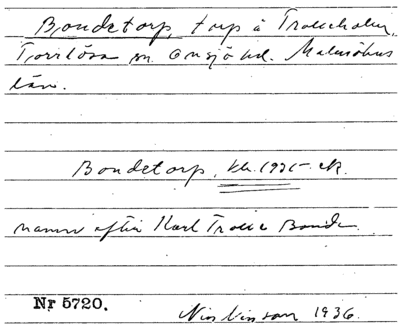 Bondetorp, torp å Trolleholm,
Torrlösa sn. Onsjö hd. Malmöhus
län.
Bondetorp, kk. 1925- ek.
namn efter Karl Trolle Bonde.
Nr 5720. Nils Nilsson 1936.